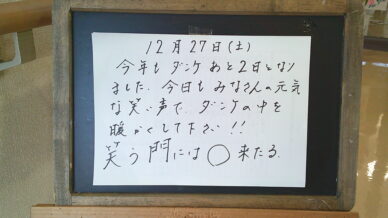 12月27日(土)
今年もダンケあと2日となり
ました。今日もみなさんの元気
な笑い声で、ダンケの中を
暖かくして下さい!!
笑う門には○来たる。